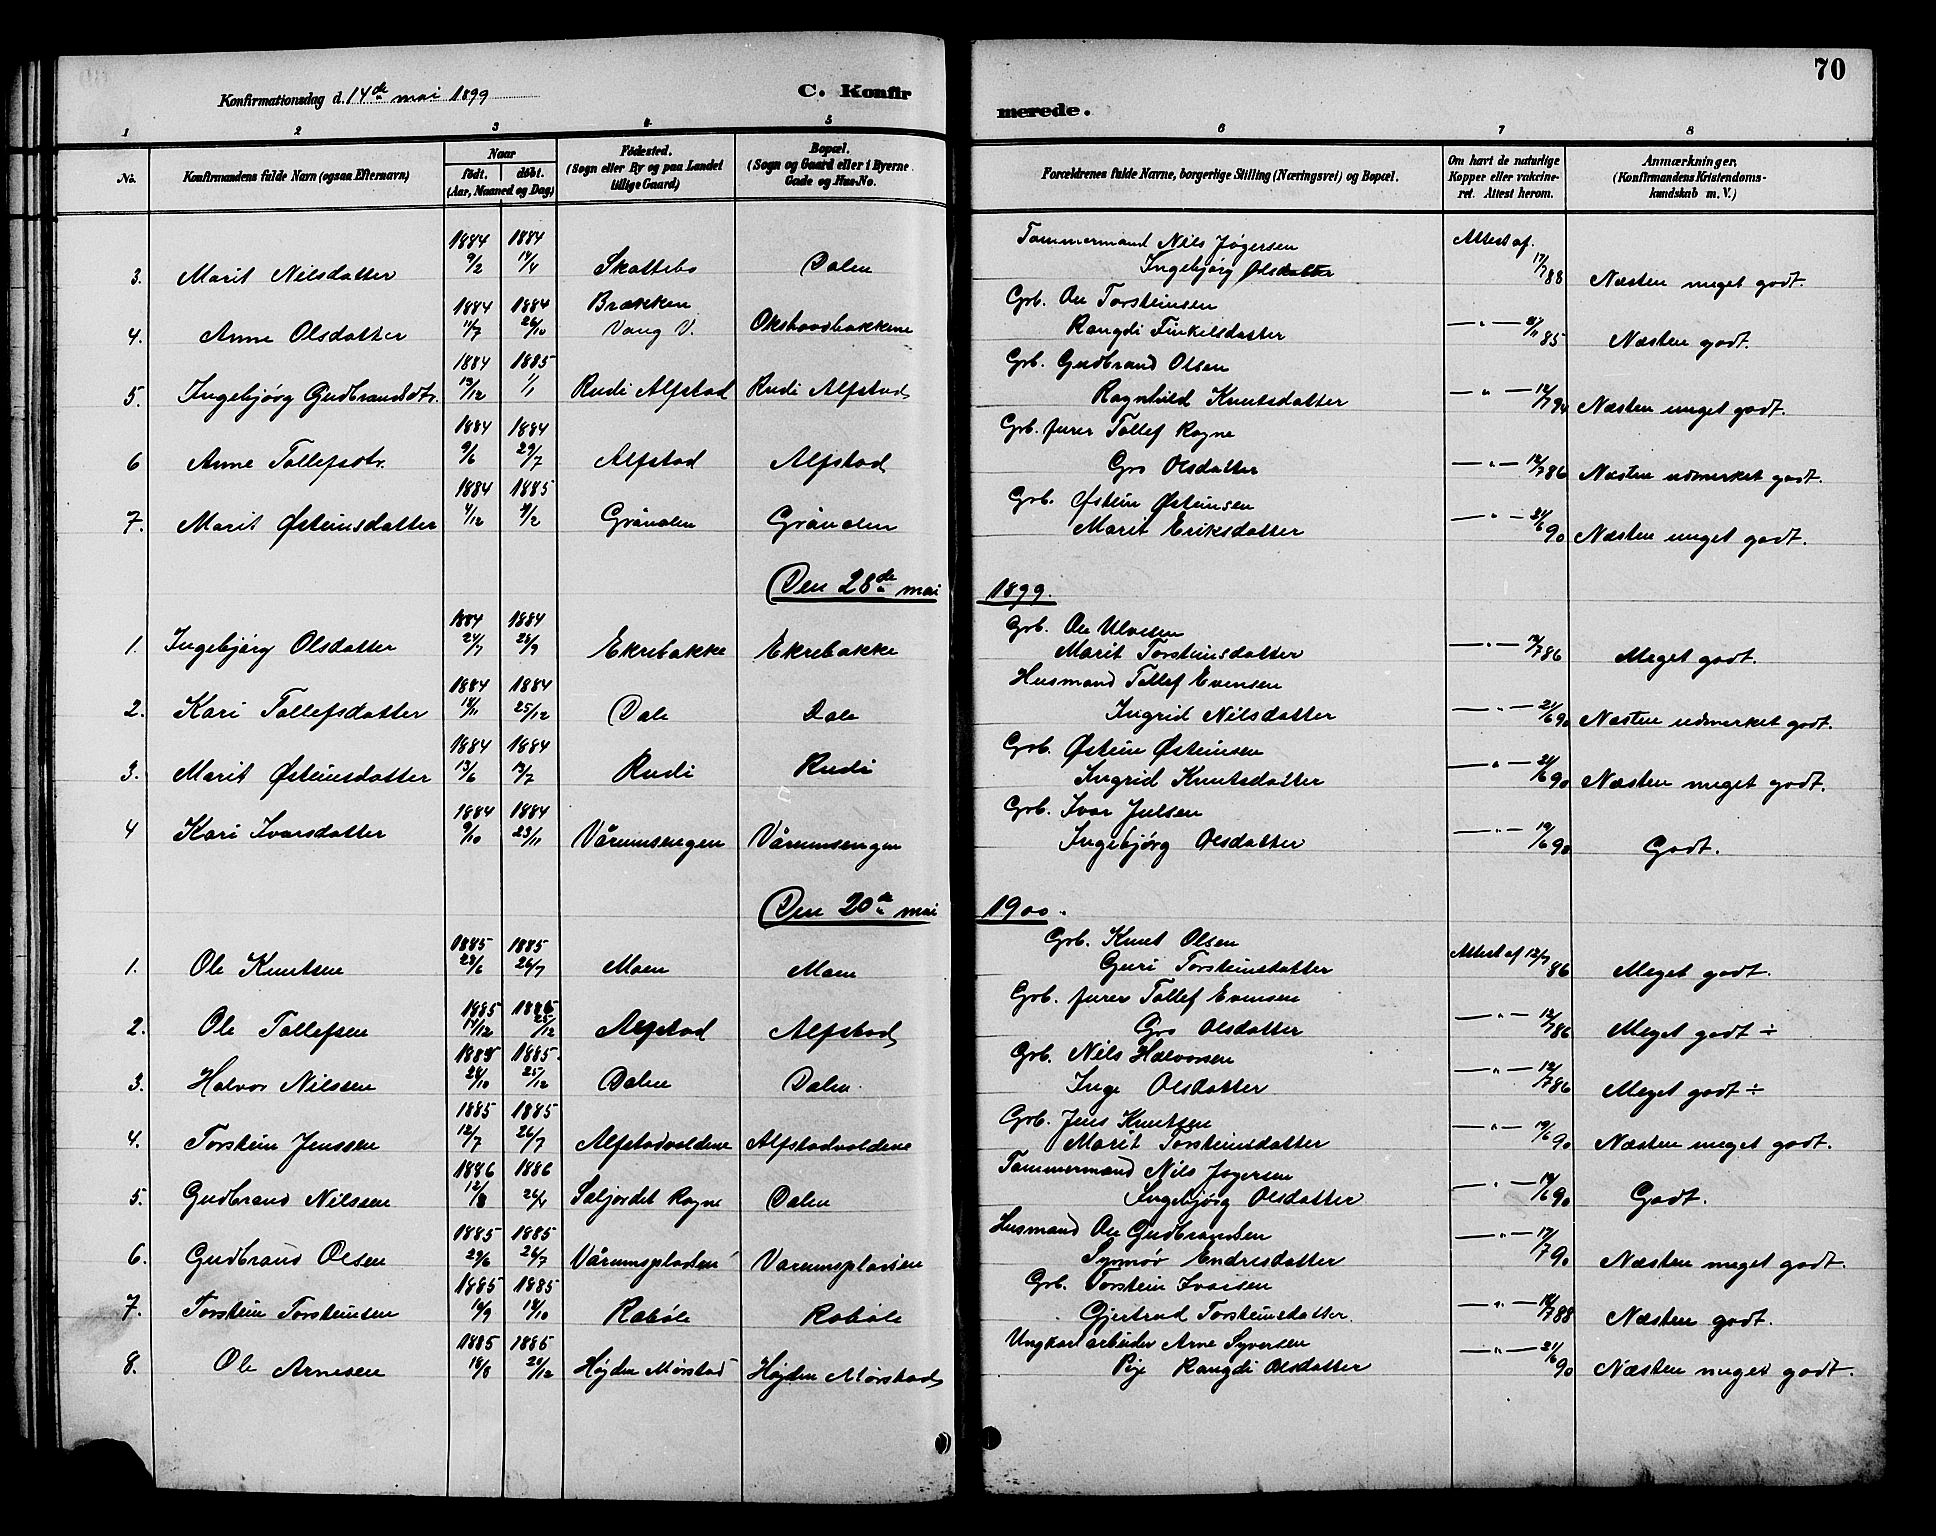 70
Konfirmationsdag d. 14de mai 1899
C. Konfirmerede.
1 2 3 4 5 6 7 8
No. Konfirmandens fulde Navn (ogsaa Efternavn) Naar født. døbt. (Aar, Maaned og Dag) Fødested. (Sogn eller By og paa Landet tillige Gaard) Bopæl. (Sogn og Gaard eller i Byerne Gade og Hus-No. Forældrenes fulde Navne, borgerlige Stilling (Næringsvei) og Bopæl. Om havt de naturlige Kopper eller vakcineret. Attest herom. Anmærkninger, (Konfirmandens Kristendomskundskab m. V.)
3. Marit Nilsdatter 1884 9/2 1884 14/4 Skattebo Dalen Tømmermand Nils Jøgersen Ingebjørg Olsdatter Attest af 17/7 88 Næsten meget godt.
4. Anne Olsdatter 1884 11/7 1884 26/10 Brækken Vang V. Okshovdbakkene Grb. Ole Torsteinsen Rangdi Finkelsdatter — " — 85 Næsten godt.
5. Ingebjørg Gudbrandsdt. 1884 13/12 1885 1/1 Rudi Alfstad Rudi Alfstad Grb. Gudbrand Olsen Ragnhild Knutsdatter — " — 12/7 94 Næsten meget godt.
6 Anne Tollefsdtr. 1884 9/6 1884 29/7 Alfstad Alfstad Grb. furer Tollef Rogne Gro Olsdatter — " — 12/7 86 Næsten udmerket godt.
7. Marit Østeinsdatter 1884 4/12 1885 /2 Grånolen Grånolen Grb. Østein Østeinsen Marit Eriksdatter — " — 21/6 90 Næsten meget godt.
Den 28de mai 1899.
1. Ingebjørg Olsdatter 1884 24/7 1884 28/9 Ekrebakke Ekrebakke Grb. Ole Ulvesen Marit Torsteinsdatter — " — 12/7 86 Meget godt.
2. Kari Tollefsdatter 1884 14/11 1884 25/12 Dale Dale Husmand Tollef Evensen Ingrid Nilsdatter — " — 21/6 90 Næsten udmerket godt.
3. Marit Østeinsdatter 1884 13/6 1884 13/7 Rudi Rudi Grb. Østein Østeinsen Ingrid Knutsdatter — " — 21/6 90 Næsten meget godt.
4 Kari Ivarsdatter 1884 9/10 1884 23/11 Vårumsengen Vårumsengen Grb. Ivar Julsen Ingebjørg Olsdatter — " — 19/6 90 Godt.
Den 20de mai 1900.
1. Ole Knutsen 1885 23/6 1885 26/7 Moen Moen Grb. Knut Olsen Guri Torsteinsdatter Attest af 12/7 86 Meget godt.
2. Ole Tollefsen 1885 14/12 1885 25/12 Alfstad Alfstad Grb. furer Tollef Evensen Gro Olsdatter — " — 12/7 86 Meget godt ÷
3. Halvor Nilssen 1885 24/10 1885. 25/12 Dalen Dalen. Grb. Nils Halvorsen Inge Olsdatter — " — 12/7 86 Meget godt ÷
4. Torstein Jenssen 1885 12/7 1885 26/7 Alfstadvoldene Alfstadvoldene Grb. Jens Knutsen Marit Torsteinsdatter — " — 19/6 90 Næsten meget godt.
5. Gudbrand Nilssen 1886 12/3 1886 26/4 Saljordet Rogne Dalen Tømmermand Nils Jøgersen Ingebjørg Olsdatter — " — 19/6 90 Godt.
6. Gudbrand Olsen 1885 29/6 1885 26/7 Vårumsplassen Varumsplassen Husmand Ole Gudbrandsen Synnør Endresdatter — " — 17/7 90 Næsten meget godt.
7. Torstein Torsteinsen 1885 19/9 1885 18/10 Robøle Robøle Grb. Torstein Ivarsen Gjertrud Torsteinsdatter. — " — 88 Næsten godt.
8. Ole Arnesen 1885 18/8 1885 26/12 Højden Mørstad Højden Mørstad Ungkarl arbeider Arne Syversen Pige Rangdi Olsdatter — " — 21/6 90 Næsten meget godt.